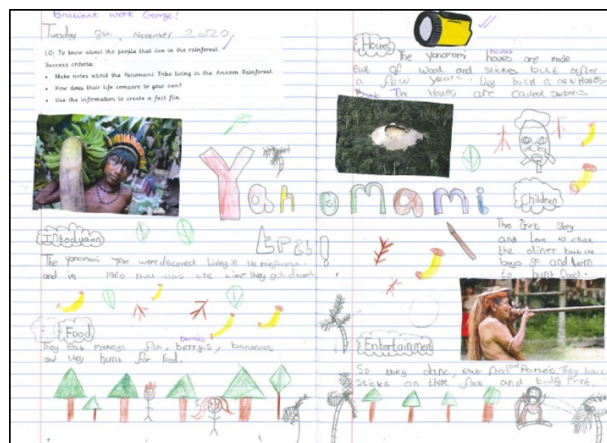 Brilliant work George!
Tuesday 8th, November 2020
LO: To know about the people that live in the rainforest.
Success criteria:
Make notes about the Yanomami Tribe living in the Amazon Rainforest.
How does their life compare to your own?
Use the information to create a fact file.
Yanomami
Introduction
The Yanomami were discovered living in the
and in 1960 was the time they got
Food
berries
They eat monkeys fish, berrys, bananas
and they hunt for food.
Houses
houses
The Yanomami houses are made
out of wood and sticks but after
a few years they build a new
The are called
Children
The Girls Stay
and to
the diner but the
boys go and
to hunt food.
Entertainment
So they dance, eat food and They have
sticks on there face and body Print.